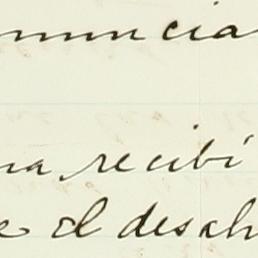 nuncia
na recibí
e el desah